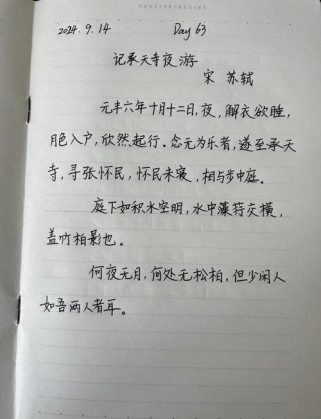 2024.9.14 Day 63
记承天寺夜游
宋 苏轼
元丰六年十月十二日,夜,解衣欲睡,
月色入户,欣然起行。念无为乐者,遂至承天
寺,寻张怀民,怀民未寝,相与步中庭。
庭下如积水空明,水中藻荇交横,
盖竹柏影也。
何夜无月,何处无松柏,但少闲人
如吾两人者耳。